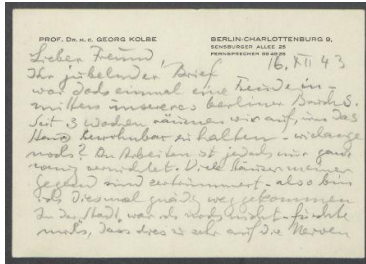 PROF. DR. H. C. GEORG KOLBE
BERLIN-CHARLOTTENBURG 9,
SENSBURGER ALLEE 25
FERNSPRECHER
16. XII 43
Lieber Freund,
Ihr jubelnder Brief
war doch einmal eine Freude in-
mitten unseres berliner
Seit 3 Wochen räumen wir auf, um das
Haus bewohnbar zu halten - wielange
noch? An Arbeiten ist jedoch nur ganz
wenig vernichtet. Viele Häuser meiner
Gegend sind zertrümmert - also bin
ich diesmal gnädig weggekommen
In der Stadt war ich noch nicht - fürchte
mich, dass dies zu sehr auf die Nerven